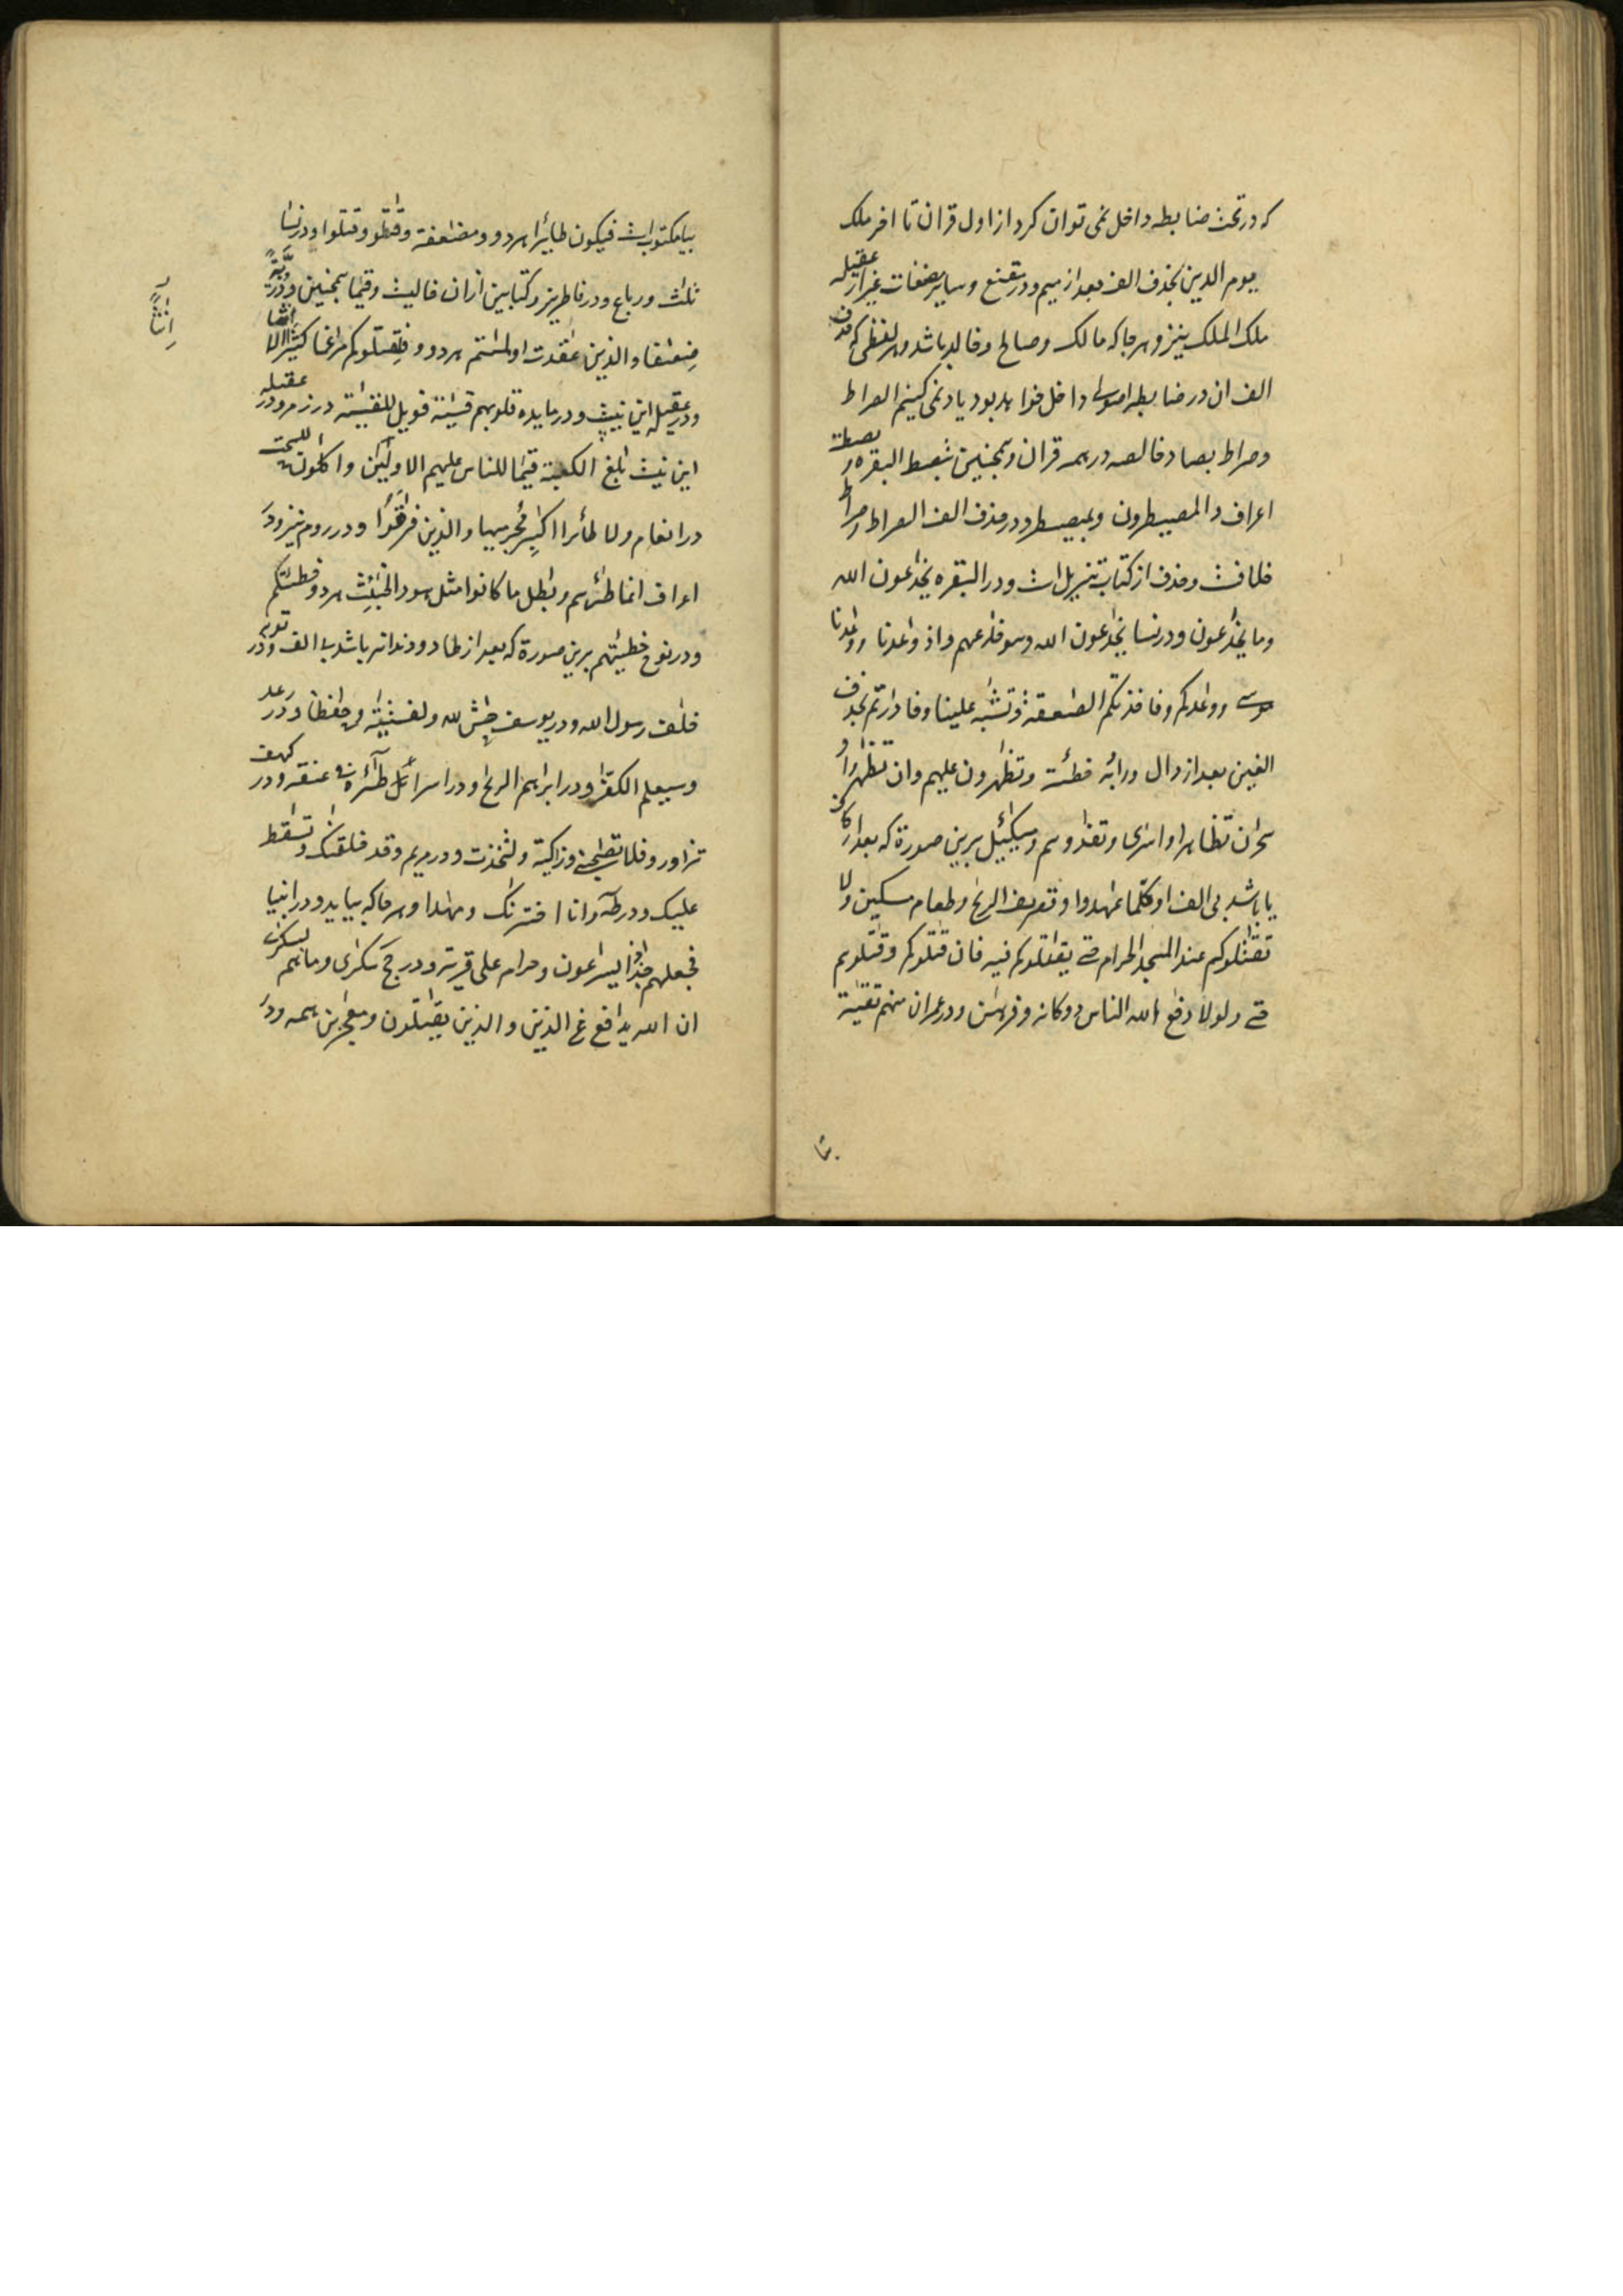 که در تحت ضابطه داخل نمی توان کرد از اول قران تا اخر ملک
یوم الدین بحذف الف بعد از میم و در مقنع و سایر مصنفات غیر از عقیله
ملک الملک نیز و هر جا که مالک و صالح و خالد باشد و هر لفظی که حذف
الف ان در ضابطه داخل خواهد بود یاد نمی کنیم الصراط
و صراط بصاد خالصه در همه قران و همچنین یبصط البقره و بصطة
اعراف و المصیطرون و بمصیطر و در حذف الف الصراط و صراط
خلافست و حذف از کتاب تنزیل است و در البقره یخدعون الله
وما یخدعون و در نسا یخدعون الله وهو خدعهم و اذ وعدنا ووعدنا
موسی ووعدکم و فاخذتکم الصعقة و تشبه علینا و فادرتم بحذف
الفین بعد از دال و را به خطئته و تظهرون علیهم وان تظهرا و
سحران تظاهرا و اسری و تفدوهم و میکئیل برین صورة که بعد از کاف
یا باشد بی الف او کلما عهدوا و تصریف الریح و طعام مسکین ولا
تقتلوکم عند المسجد الحرام حتی یقتلوکم فیه فان قتلوکم وقتلوهم
حتی ولولا دفع الله الناس دو کانه و فرهن و در عمران منهم تقیة
بیا مکتوب است فیکون طائرا هر دو و مضعفة و قتلوا وقتلوا و در نسا
ثلث و رباع و در فاطر نیز و کتابین ازان خالیست و قیما همچنین و ذریة
ضعفا والذین عقدت او لمستم هر دو و فلقتلوکم مرغما کثیرا الا انثا
و در عقیله این نیست و در مایده قلوبهم قسیة فویل للقسیة در زمر و در عقیله
این نیست بلغ الکعبة قیما للناس علیهم الاولین و اکلون للسحت
در انعام ولا طائرا اکبر مجرمیها والذین فرقوا و در روم نیز و در
اعراف انما طئرهم و بطل ما کانوا مثل هود الخبئث هر دو خطیئتکم
و در نوح خطیئتهم برین صورة که بعد از طا دو دندانه باشد بی الف و در توبه
خلف رسول الله و در یوسف حش لله و لفتیته و حفظا و در رعد
وسیعلم الکفر و در ابراهیم الریح و در اسرائیل طئره فی عنقه و در کهف
تزاور و فلا تصحبنی و زاکیة و لتخذت و در مریم و قد خلقنک و تسقط
علیک و در طه وانا اخترنک و مهدا و هر جا که بیاید و در انبیا
فجعلهم جذذا یسرعون و حرام علی قریة و در حج سکری وما هم بسکری
ان الله یدافع عن الذین والذین یقتلون و معجزین همه و در
انثا